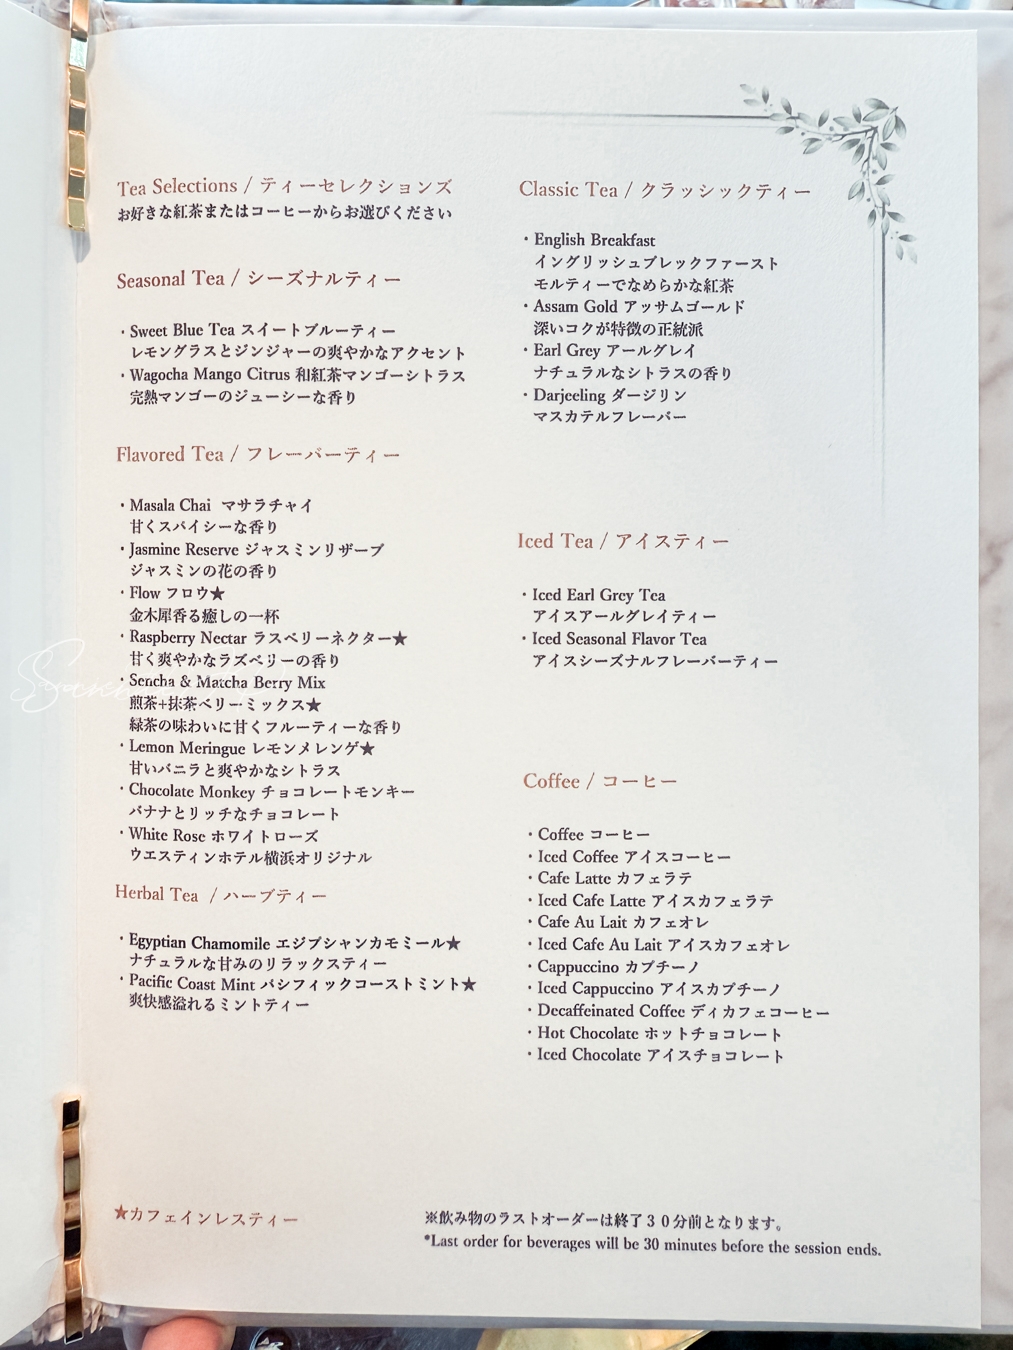 Tea Selections / ティーセレクションズ
お好きな紅茶またはコーヒーからお選びください
Seasonal Tea / シーズナルティー
・Sweet Blue Tea スイートブルーティー
レモングラスとジンジャーの爽やかなアクセント
・Wagocha Mango Citrus 和紅茶マンゴーシトラス
完熟マンゴーのジューシーな香り
Flavored Tea / フレーバーティー
・Masala Chai マサラチャイ
甘くスパイシーな香り
・Jasmine Reserve ジャスミンリザーブ
ジャスミンの花の香り
・Flow フロウ★
金木犀香る癒しの一杯
・Raspberry Nectar ラスベリーネクター★
甘く爽やかなラズベリーの香り
・Sencha & Matcha Berry Mix
煎茶+抹茶ベリーミックス★
緑茶の味わいに甘くフルーティーな香り
・Lemon Meringue レモンメレンゲ★
甘いバニラと爽やかなシトラス
・Chocolate Monkey チョコレートモンキー
バナナとリッチなチョコレート
・White Rose ホワイトローズ
ウエスティンホテル横浜オリジナル
Herbal Tea / ハーブティー
・Egyptian Chamomile エジプシャンカモミール★
ナチュラルな甘みのリラックスティー
・Pacific Coast Mint パシフィックコーストミント★
爽快感溢れるミントティー
Classic Tea / クラッシックティー
・English Breakfast
イングリッシュブレックファースト
モルティーでなめらかな紅茶
・Assam Gold アッサムゴールド
深いコクが特徴の正統派
・Earl Grey アールグレイ
ナチュラルなシトラスの香り
・Darjeeling ダージリン
マスカテルフレーバー
Iced Tea / アイスティー
・Iced Earl Grey Tea
アイスアールグレイティー
・Iced Seasonal Flavor Tea
アイスシーズナルフレーバーティー
Coffee / コーヒー
・Coffee コーヒー
・Iced Coffee アイスコーヒー
・Cafe Latte カフェラテ
・Iced Cafe Latte アイスカフェラテ
・Cafe Au Lait カフェオレ
・Iced Cafe Au Lait アイスカフェオレ
・Cappuccino カプチーノ
・Iced Cappuccino アイスカプチーノ
・Decaffeinated Coffee ディカフェコーヒー
・Hot Chocolate ホットチョコレート
・Iced Chocolate アイスチョコレート
★カフェインレスティー
※飲み物のラストオーダーは終了３０分前となります。
*Last order for beverages will be 30 minutes before the session ends.